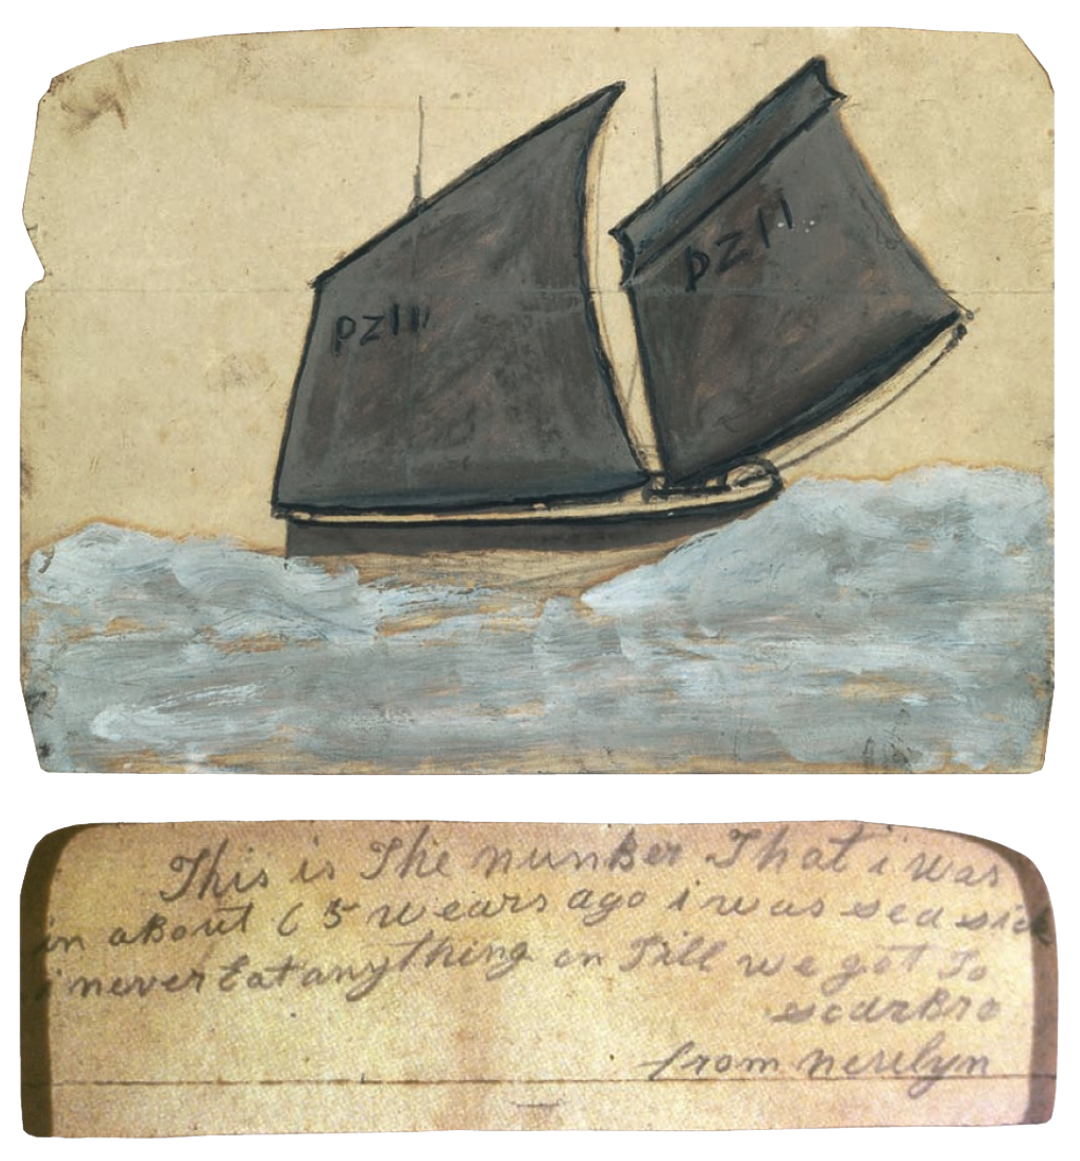 PZ11
PZ111
This is The nunBer That i was
in aBout 65 wears ago i was sea sick
i never Eat any thing on Till we got To
scarBro
from nerelyn